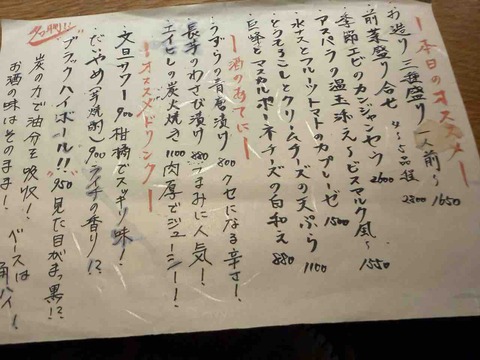 ー本日のオススメー
お造り三種盛り 一人前〜 1650
前菜盛り合せ 4〜5品程 2300
季節エビのカンジャンセウ 2600
アスパラの温玉添え〜ビスマルク風〜 1550
水ナスとフルーツトマトのカプレーゼ 1500
とうもろこしとクリームチーズの天ぷら 1100
巨峰とマスカルポーネチーズの白和え 880
ー酒のあてにー
うずらの青唐漬け 800 クセになる辛さ!
長芋のわさび漬け 880 つまみに人気!
エイヒレの炭火焼き 1100 肉厚でジューシー!
ーオススメドリンクー
文旦サワー 900 柑橘でスッキリ味!
だいやめ(芋焼酎) 900 ライチの香り!?
ブラックハイボール!! 950 見た目がまっ黒!?
炭の力で油分を吸収! ベースは
お酒の味はそのまま! 角ハイ!